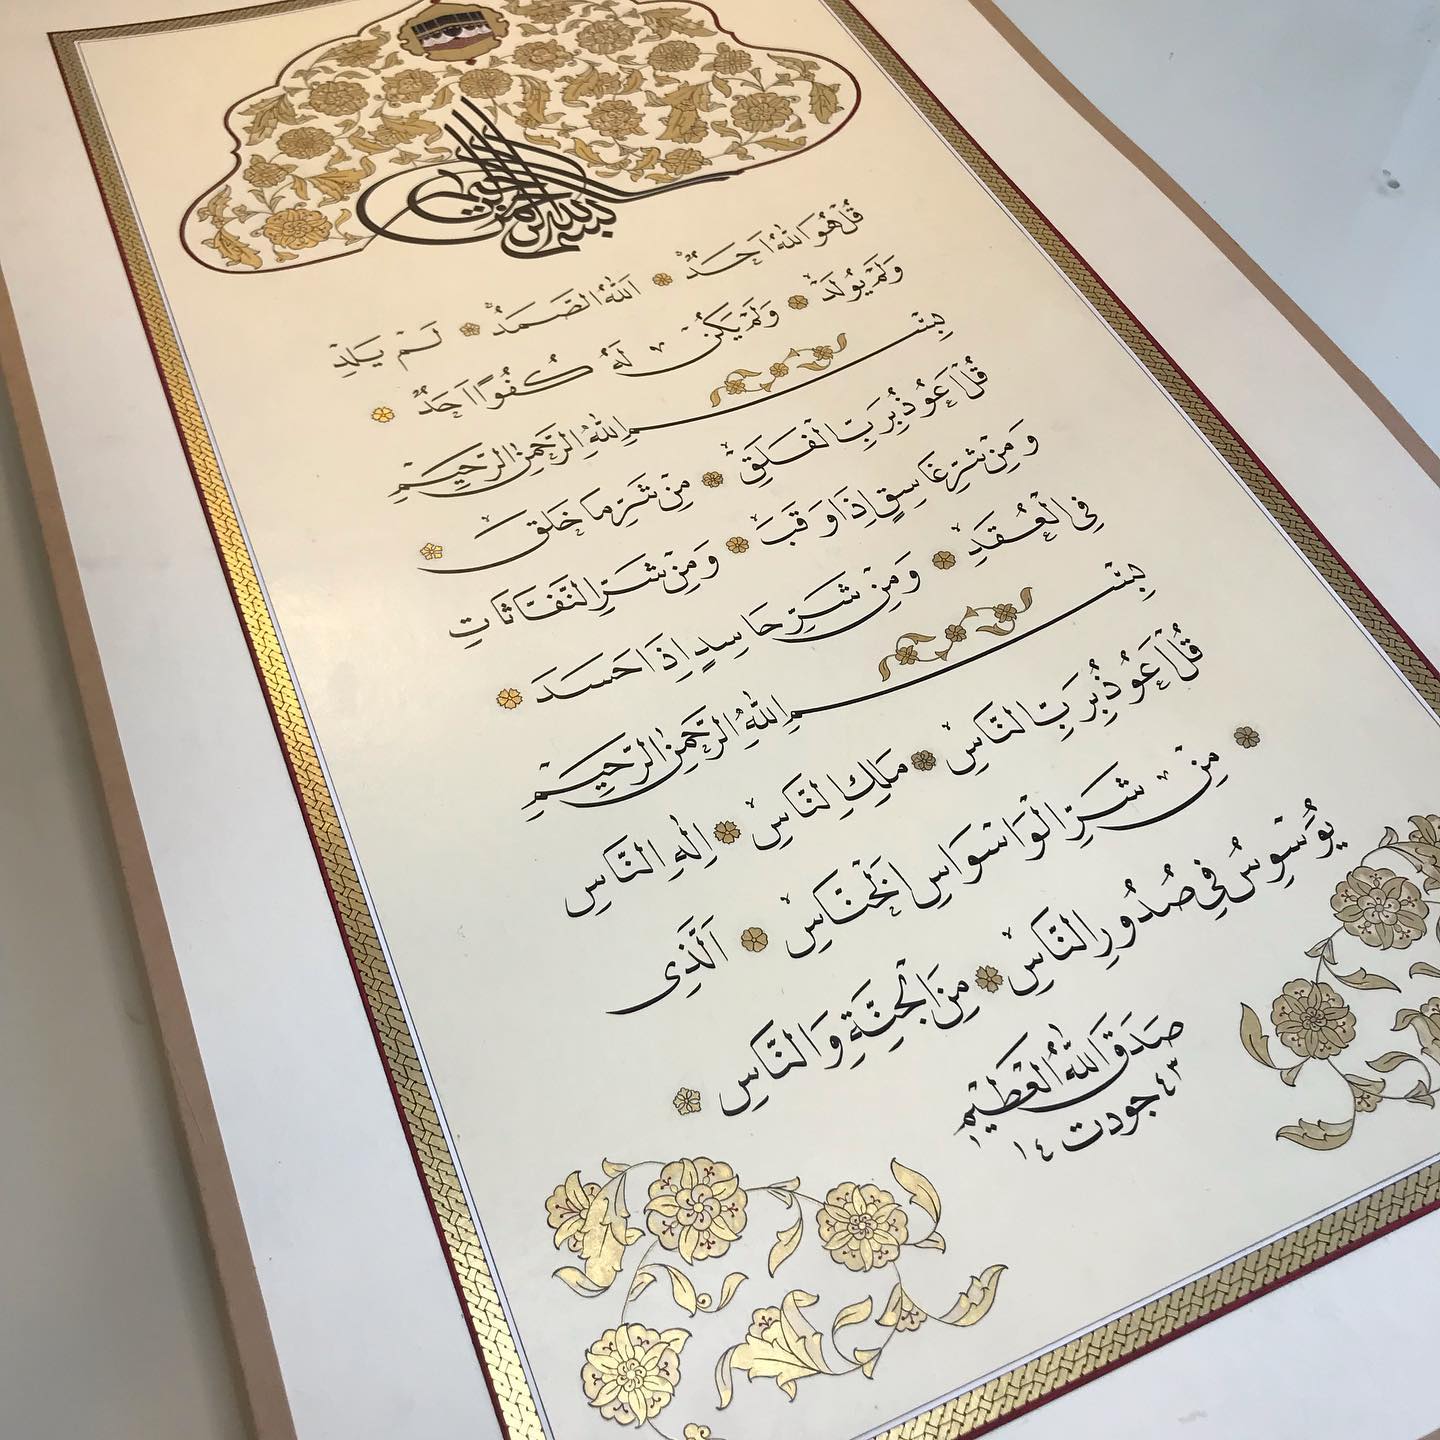 بسم الله الرحمن الرحيم
قُلْ هُوَ اللهُ اَحَدٌ اَللهُ الصَّمَدُ لَمْ يَلِدْ
وَلَمْ يُولَدْ وَلَمْ يَكُنْ لَهُ كُفُوًا اَحَدٌ
بِسْمِ اللهِ الرَّحْمٰنِ الرَّحِيمِ
قُلْ اَعُوذُ بِرَبِّ الْفَلَقِ مِنْ شَرِّ مَا خَلَقَ
وَمِنْ شَرِّ غَاسِقٍ اِذَا وَقَبَ وَمِنْ شَرِّ النَّفَّاثَاتِ
فِي الْعُقَدِ وَمِنْ شَرِّ حَاسِدٍ اِذَا حَسَدَ
بِسْمِ اللهِ الرَّحْمٰنِ الرَّحِيمِ
قُلْ اَعُوذُ بِرَبِّ النَّاسِ مَلِكِ النَّاسِ اِلٰهِ النَّاسِ
مِنْ شَرِّ الْوَاسْوَاسِ الْخَنَّاسِ اَلَّذِى
يُوَسْوِسُ فِي صُدُورِ النَّاسِ مِنَ الْجِنَّةِ وَالنَّاسِ
صَدَقَ اللهُ الْعَظِيمُ
جودت ١٤٤٣